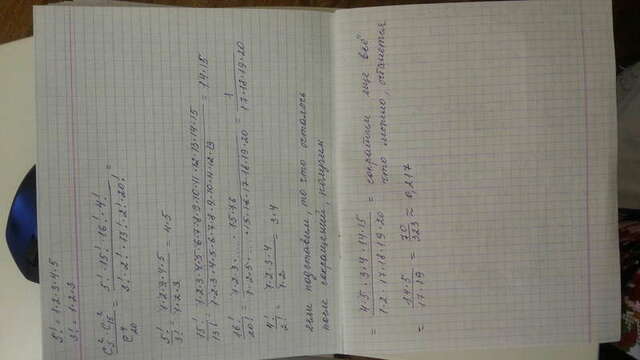 5! = 1·2·3·4·5
3! = 1·2·3
C²₅ · C²₁₅ / C⁴₂₀ = 5! · 15! · 16! · 4! / 3! · 2! · 13! · 2! · 20! =
5! / 3! = 1·2·3·4·5 / 1·2·3 = 4·5
15! / 13! = 1·2·3·4·5·6·7·8·9·10·11·12·13·14·15 / 1·2·3·4·5·6·7·8·9·10·11·12·13 = 14·15
16! / 20! = 1·2·3·...·15·16 / 1·2·3·...·15·16·17·18·19·20 = 1 / 17·18·19·20
4! / 2! = 1·2·3·4 / 1·2 = 3·4
если подставим, то что осталось
после сокращений, получим
= 4·5·3·4·14·15 / 1·2·17·18·19·20 = сократим еще всё
что можно, останется
= 14·5 / 17·19 = 70 / 323 ≈ 0,217